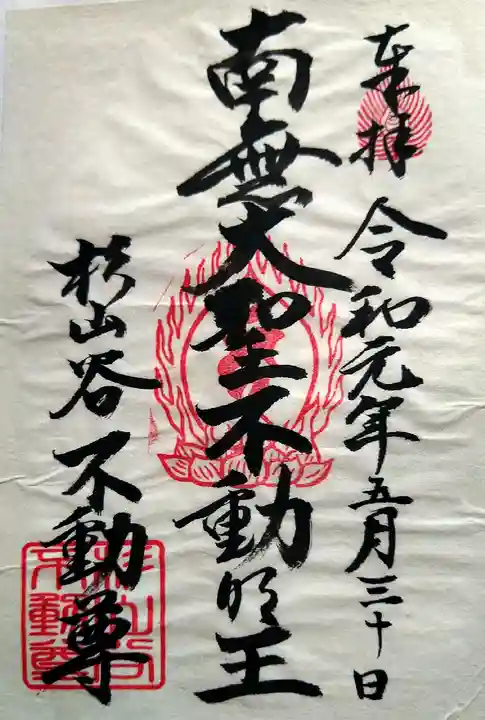 奉拝 令和元年五月三十日
南無大聖不動明王
杉山谷不動尊
杉山谷
不動尊